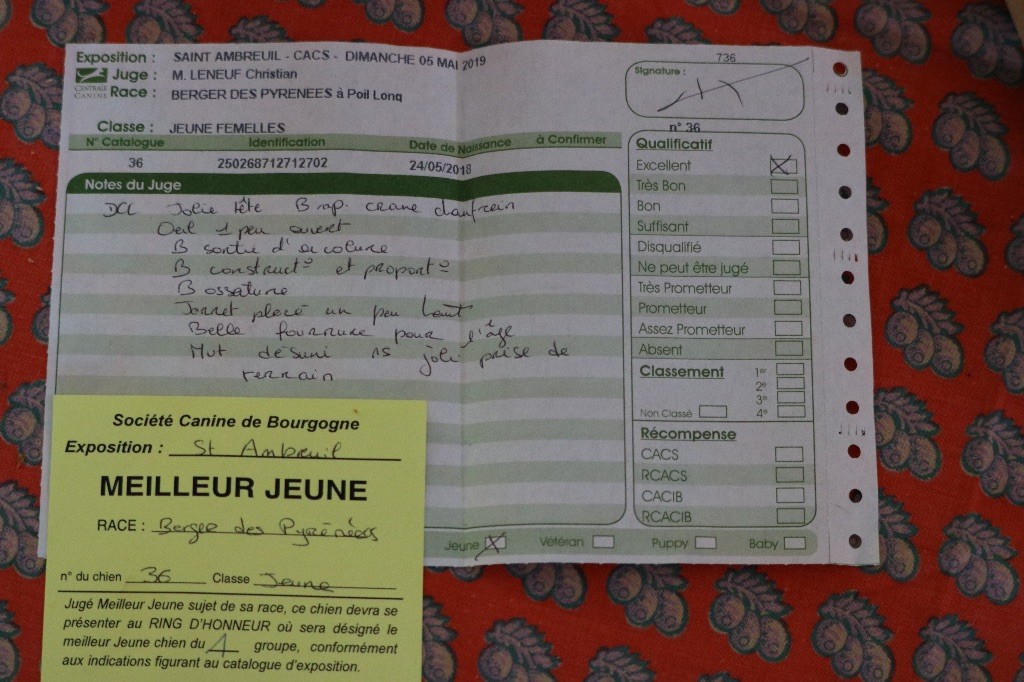 Exposition : SAINT AMBREUIL - CACS - DIMANCHE 05 MAI 2019
CENTRALE CANINE
Juge : M. LENEUF Christian
Race : BERGER DES PYRENEES à Poil Long
Classe : JEUNE FEMELLES
N° Catalogue Identification Date de Naissance à Confirmer
36 250268712712702 24/05/2018
Notes du Juge
DCL Jolie tête B rap. crane chanfrein
Oeil 1 peu ouvert
B sortie d'encolure
B construct° et proport°
B ossature
Jarret placé un peu haut
Belle fourrure pour l'âge
Mvt désuni ms joli prise de
terrain
736
Signature :
n° 36
Qualificatif
Excellent
Très Bon
Bon
Suffisant
Disqualifié
Ne peut être jugé
Très Prometteur
Prometteur
Assez Prometteur
Absent
Classement 1er
2e
3e
Non Classé 4e
Récompense
CACS
RCACS
CACIB
RCACIB
Jeune Vétéran Puppy Baby
Société Canine de Bourgogne
Exposition : St Ambreuil
MEILLEUR JEUNE
RACE : Berger des Pyrénées
n° du chien 36 Classe Jeune
Jugé Meilleur Jeune sujet de sa race, ce chien devra se
présenter au RING D'HONNEUR où sera désigné le
meilleur Jeune chien du 1 groupe, conformément
aux indications figurant au catalogue d'exposition.